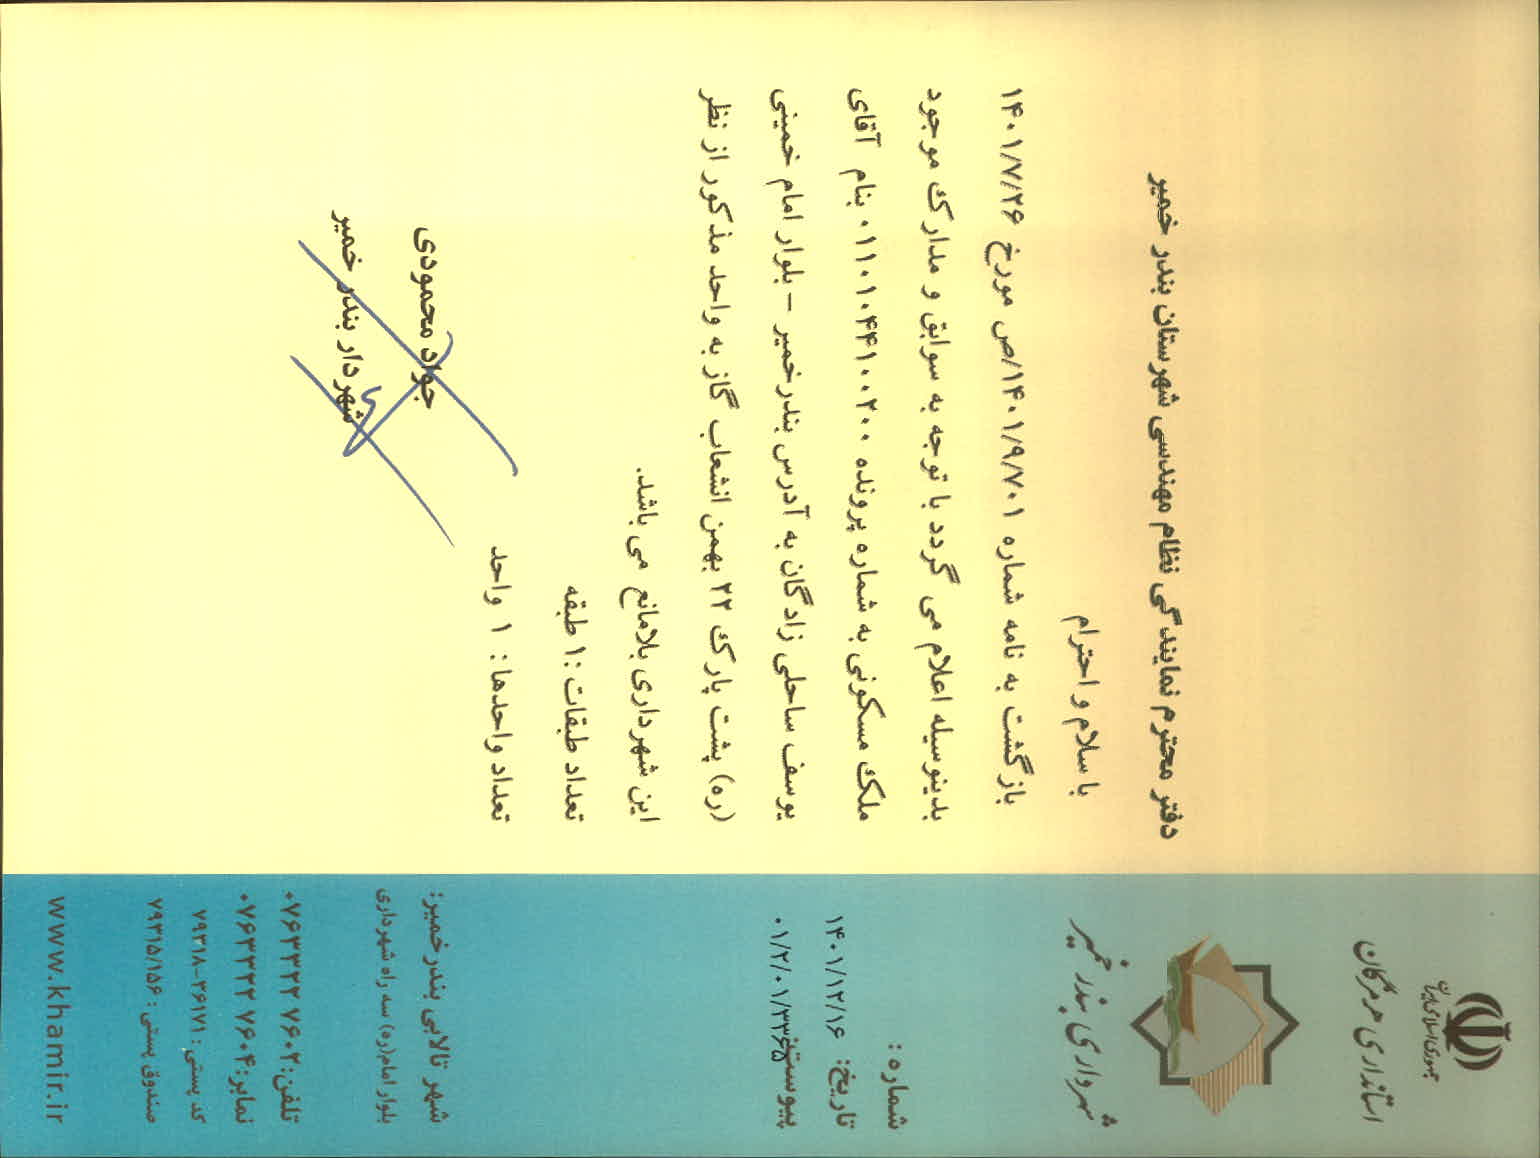 جمهوری اسلامی ایران
استانداری هرمزگان
شهرداری بندر خمیر
شماره :
تاریخ: ۱۴۰۱/۱۲/۱۶
پیوست:
۰۱/۲/۰۱/۳۳۶۵
دفتر محترم نمایندگی نظام مهندسی شهرستان بندر خمیر
با سلام و احترام
بازگشت به نامه شماره ۱۴۰۱/۹/۷۰۱/ص مورخ ۱۴۰۱/۷/۲۶
بدینوسیله اعلام می گردد با توجه به سوابق و مدارک موجود
ملک مسکونی به شماره پرونده ۰۱۱۰۱۰۴۴۱۰۰۲۰۰ بنام آقای
یوسف ساحلی زادگان به آدرس بندرخمیر – بلوار امام خمینی
(ره) پشت پارک ۲۲ بهمن انشعاب گاز به واحد مذکور از نظر
این شهرداری بلامانع می باشد.
تعداد طبقات :۱ طبقه
تعداد واحدها : ۱ واحد
جواد محمودی
شهردار بندر خمیر
شهر تالابی بندر خمیر:
بلوار امام(ره) سه راه شهرداری
تلفن: ۰۷۶۳۳۲۲۷۶۰۲
نمابر: ۰۷۶۳۳۲۲۷۶۰۴
کد پستی : ۷۹۳۱۸-۲۶۱۷۱
صندوق پستی : ۷۹۳۱۵/۱۵۶
www.khamir.ir